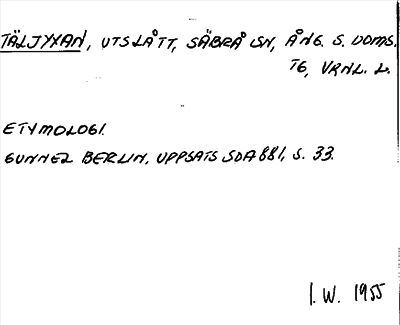 TÄLJYXAN, UTSLÅTT, SÄBRÅ SN, ÅNG. S. DOMS.
TG, VRNL. L.
ETYMOLOGI.
GUNNEL BERLIN. UPPSATS SDA881, S. 33.
I. W. 1955